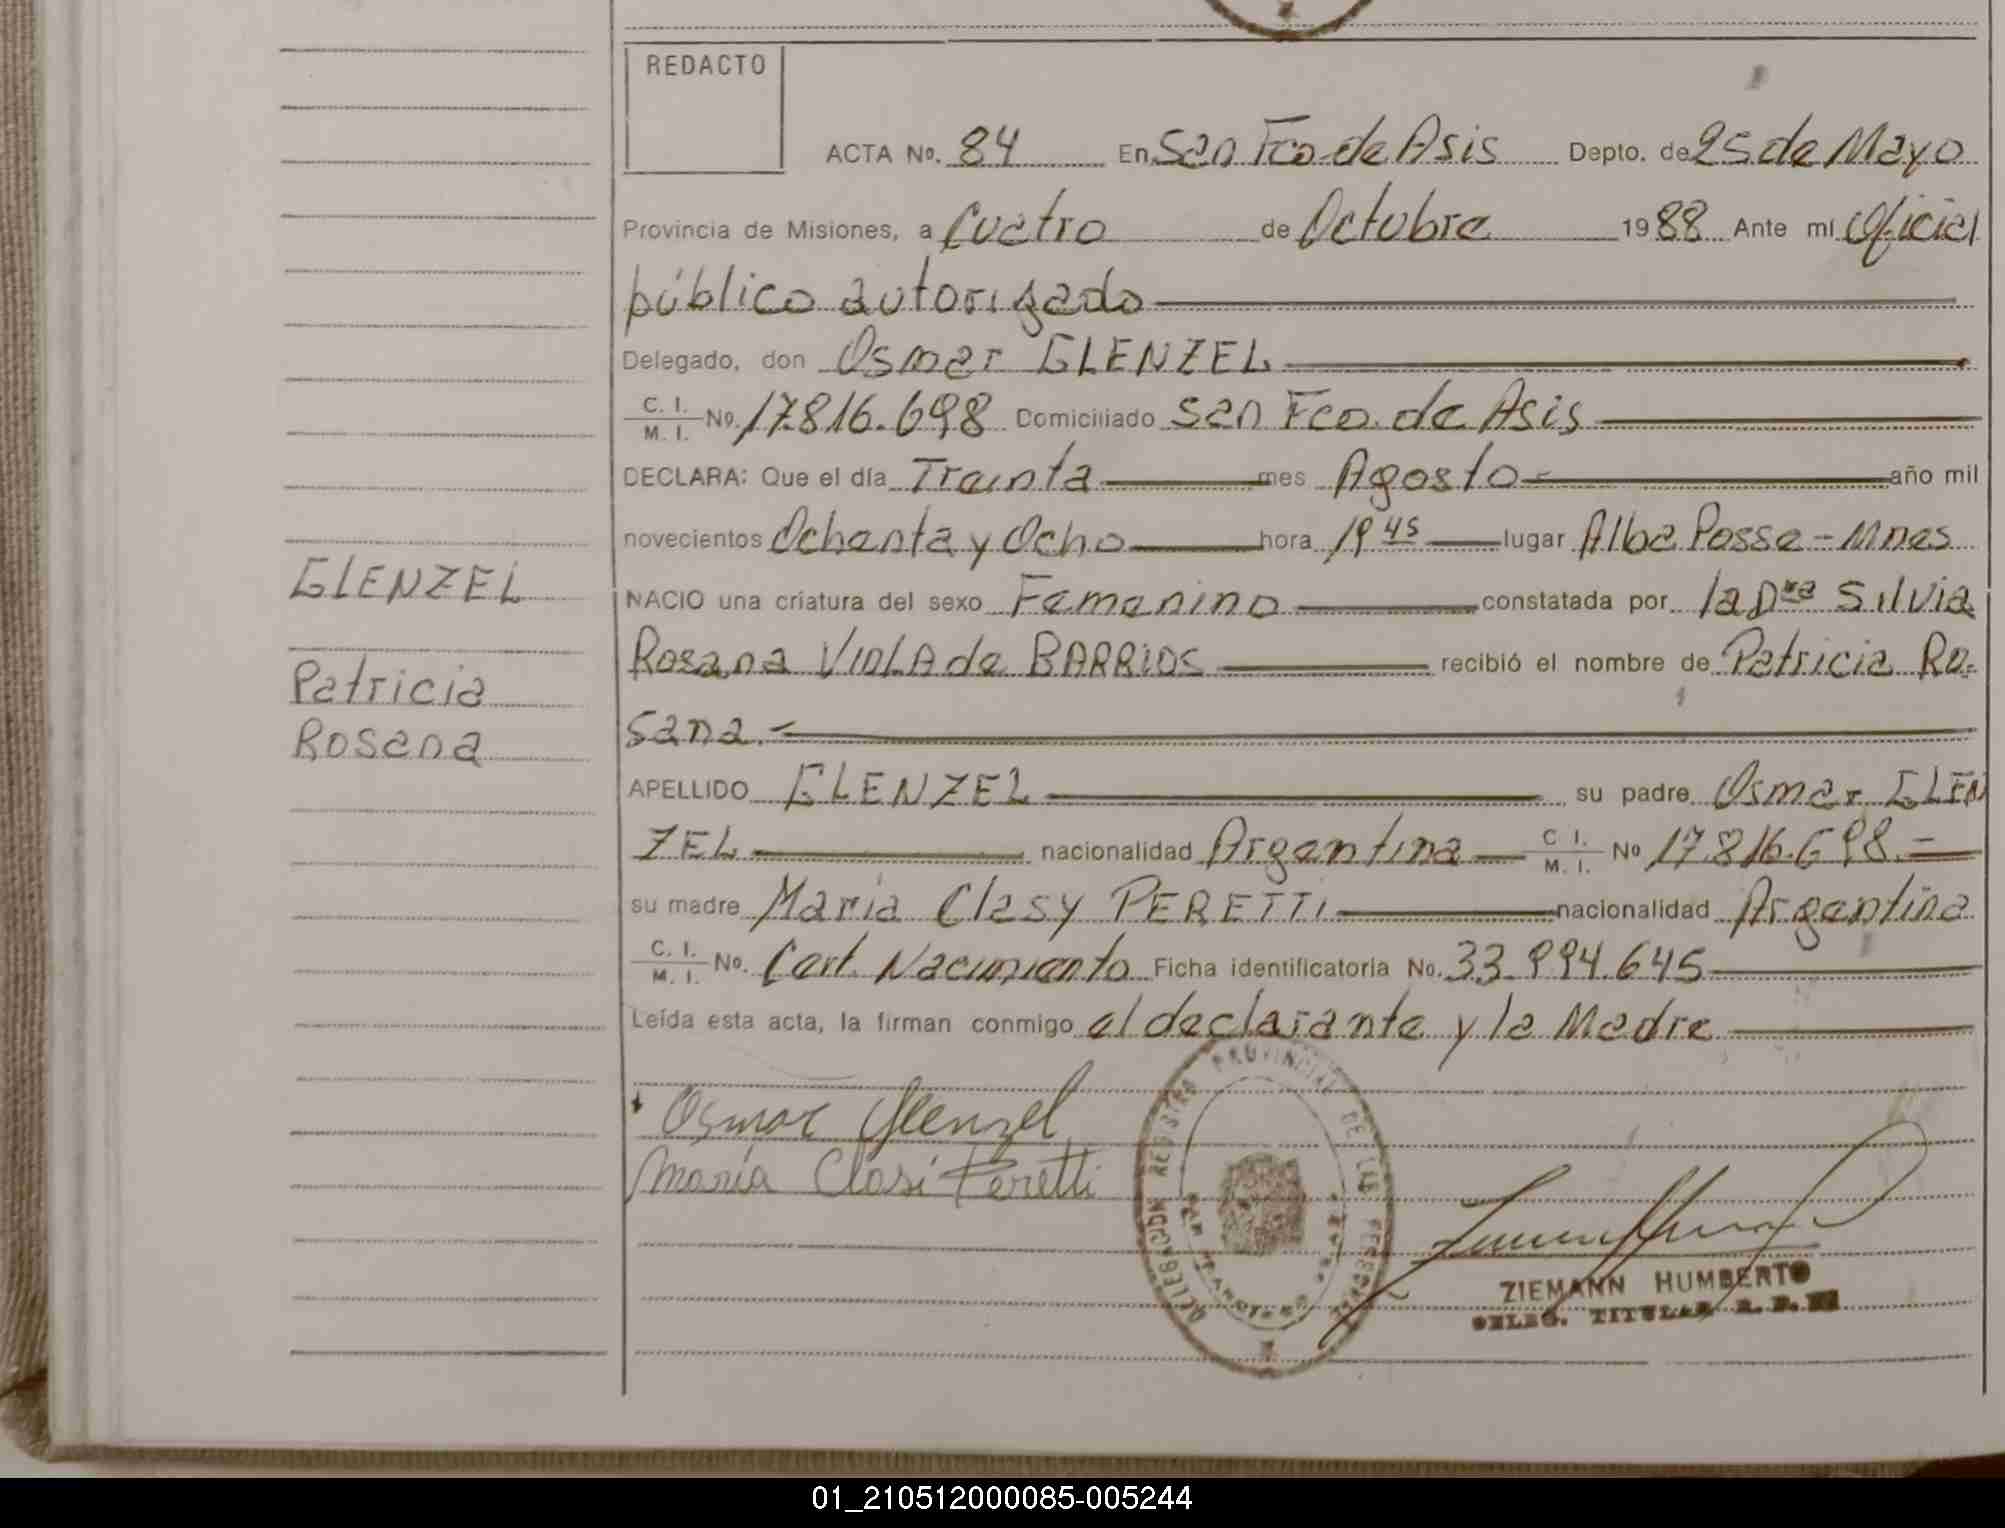 REDACTO
ACTA No. 84 En San Fco de Asis Depto. de 25 de Mayo
Provincia de Misiones, a Cuatro de Octubre 1988 Ante mí Oficial
público autorizado
Delegado, don Osmar GLENZEL
C. I. / M. I. No. 17.816.698 Domiciliado San Fco. de Asis
DECLARA: Que el día Treinta mes Agosto año mil
novecientos Ochenta y Ocho hora 19 45 lugar Alba Posse - Mnes
GLENZEL
NACIO una criatura del sexo Femenino constatada por la Dra Silvia
Rosana VIOLA de BARRIOS recibió el nombre de Patricia Ro-
Patricia
sana.-
Rosana
APELLIDO GLENZEL su padre Osmar GLEN
ZEL nacionalidad Argentina C I. / M. I. No 17.816.698.-
su madre Maria Clasy PERETTI nacionalidad Argentina
C. I. / M. I. No. Cert. Nacimiento Ficha identificatoria No. 33.994.645
Leída esta acta, la firman conmigo el declarante y la Madre
Osmar Glenzel
María Clasi Peretti
DELEGACION REGISTRO PROVINCIAL DE LAS PERSONAS
ZIEMANN HUMBERTO
DELEG. TITULAR R. P.
01_210512000085-005244